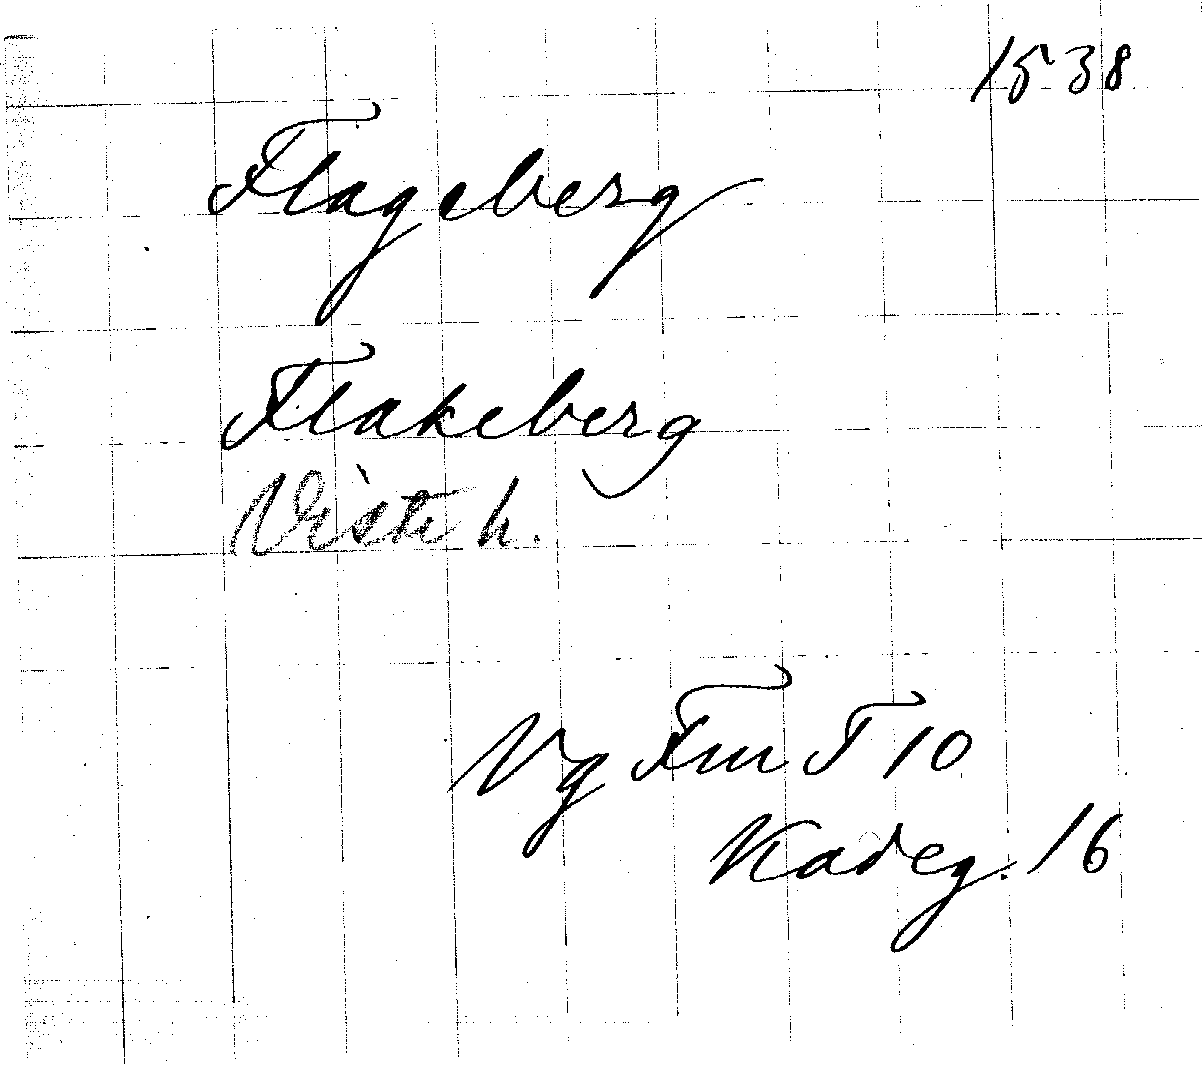 1538
Flageberg
Flakeberg
Viste h.
Vg Fm T 10
Kadeg. 16